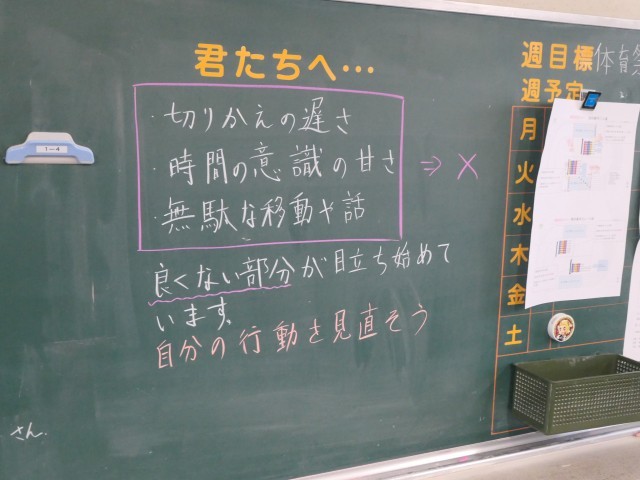 君たちへ…
・切りかえの遅さ
・時間の意識の甘さ
・無駄な移動や話
⇒ ×
良くない部分が目立ち始めて
います。
自分の行動を見直そう
さん.
1-4
週目標 体育祭
週予定
月
火
水
木
金
土